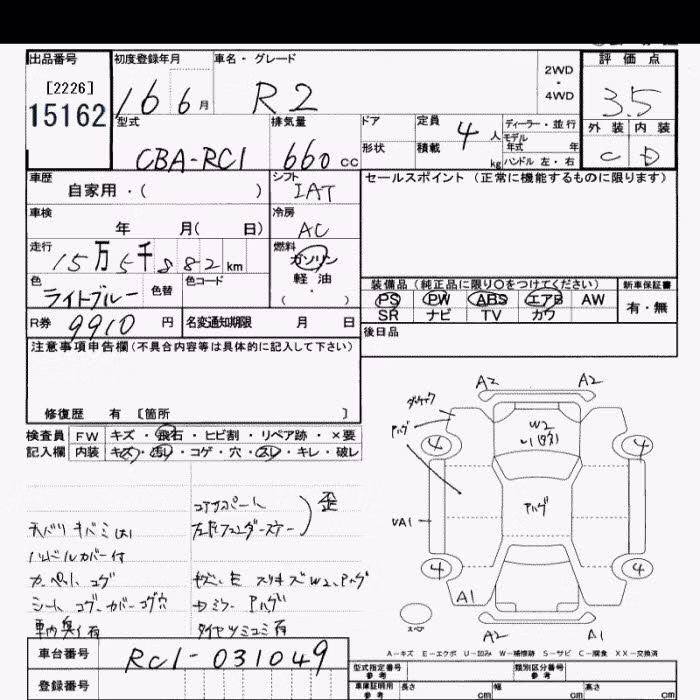 出品番号 初度登録年月 車名・グレード 2WD・4WD 評価点
[2226]
15162
16 6月 R2 3.5
型式 排気量 ドア 定員 ディーラー・並行 外装 内装
CBA-RC1 660cc 形状 積載 4人 モデル年式 年 C D
kg ハンドル 左・右
車歴 シフト セールスポイント(正常に機能するものに限ります)
自家用・( ) IAT
車検 冷房
年 月( 日) AC
走行 燃料
15万5千882km ガソリン
色 色替 色コード 軽油
ライトブルー ・( )
装備品(純正品に限り○をつけてください) 新車保証書
PS PW ABS エアB AW 有・無
SR ナビ TV カワ
R券 9910円 名変通知期限 月 日
後日品
注意事項申告欄(不具合内容等は具体的に記入して下さい)
修復歴 有 [箇所 ]
検査員 FW キズ・飛石・ヒビ割・リペア跡・×要
記入欄 内装 キズ・汚レ・コゲ・穴・スレ・キレ・破レ
コアサポート
歪
ハンドルカバー付
カーペット コゲ
シート コゲ カバーコゲ穴
タイヤツミコミ有
A2 A2
W2
ハゲ
4 4
VA1
4 4
A1
A2 A1
A-キズ E-エクボ U-凹み W-補修跡 S-サビ C-腐食 XX-交換済
車台番号 RC1-031049
登録番号
型式指定番号 参考 類別区分番号 参考
車庫証明用 参考 長さ cm 幅 cm 高さ cm